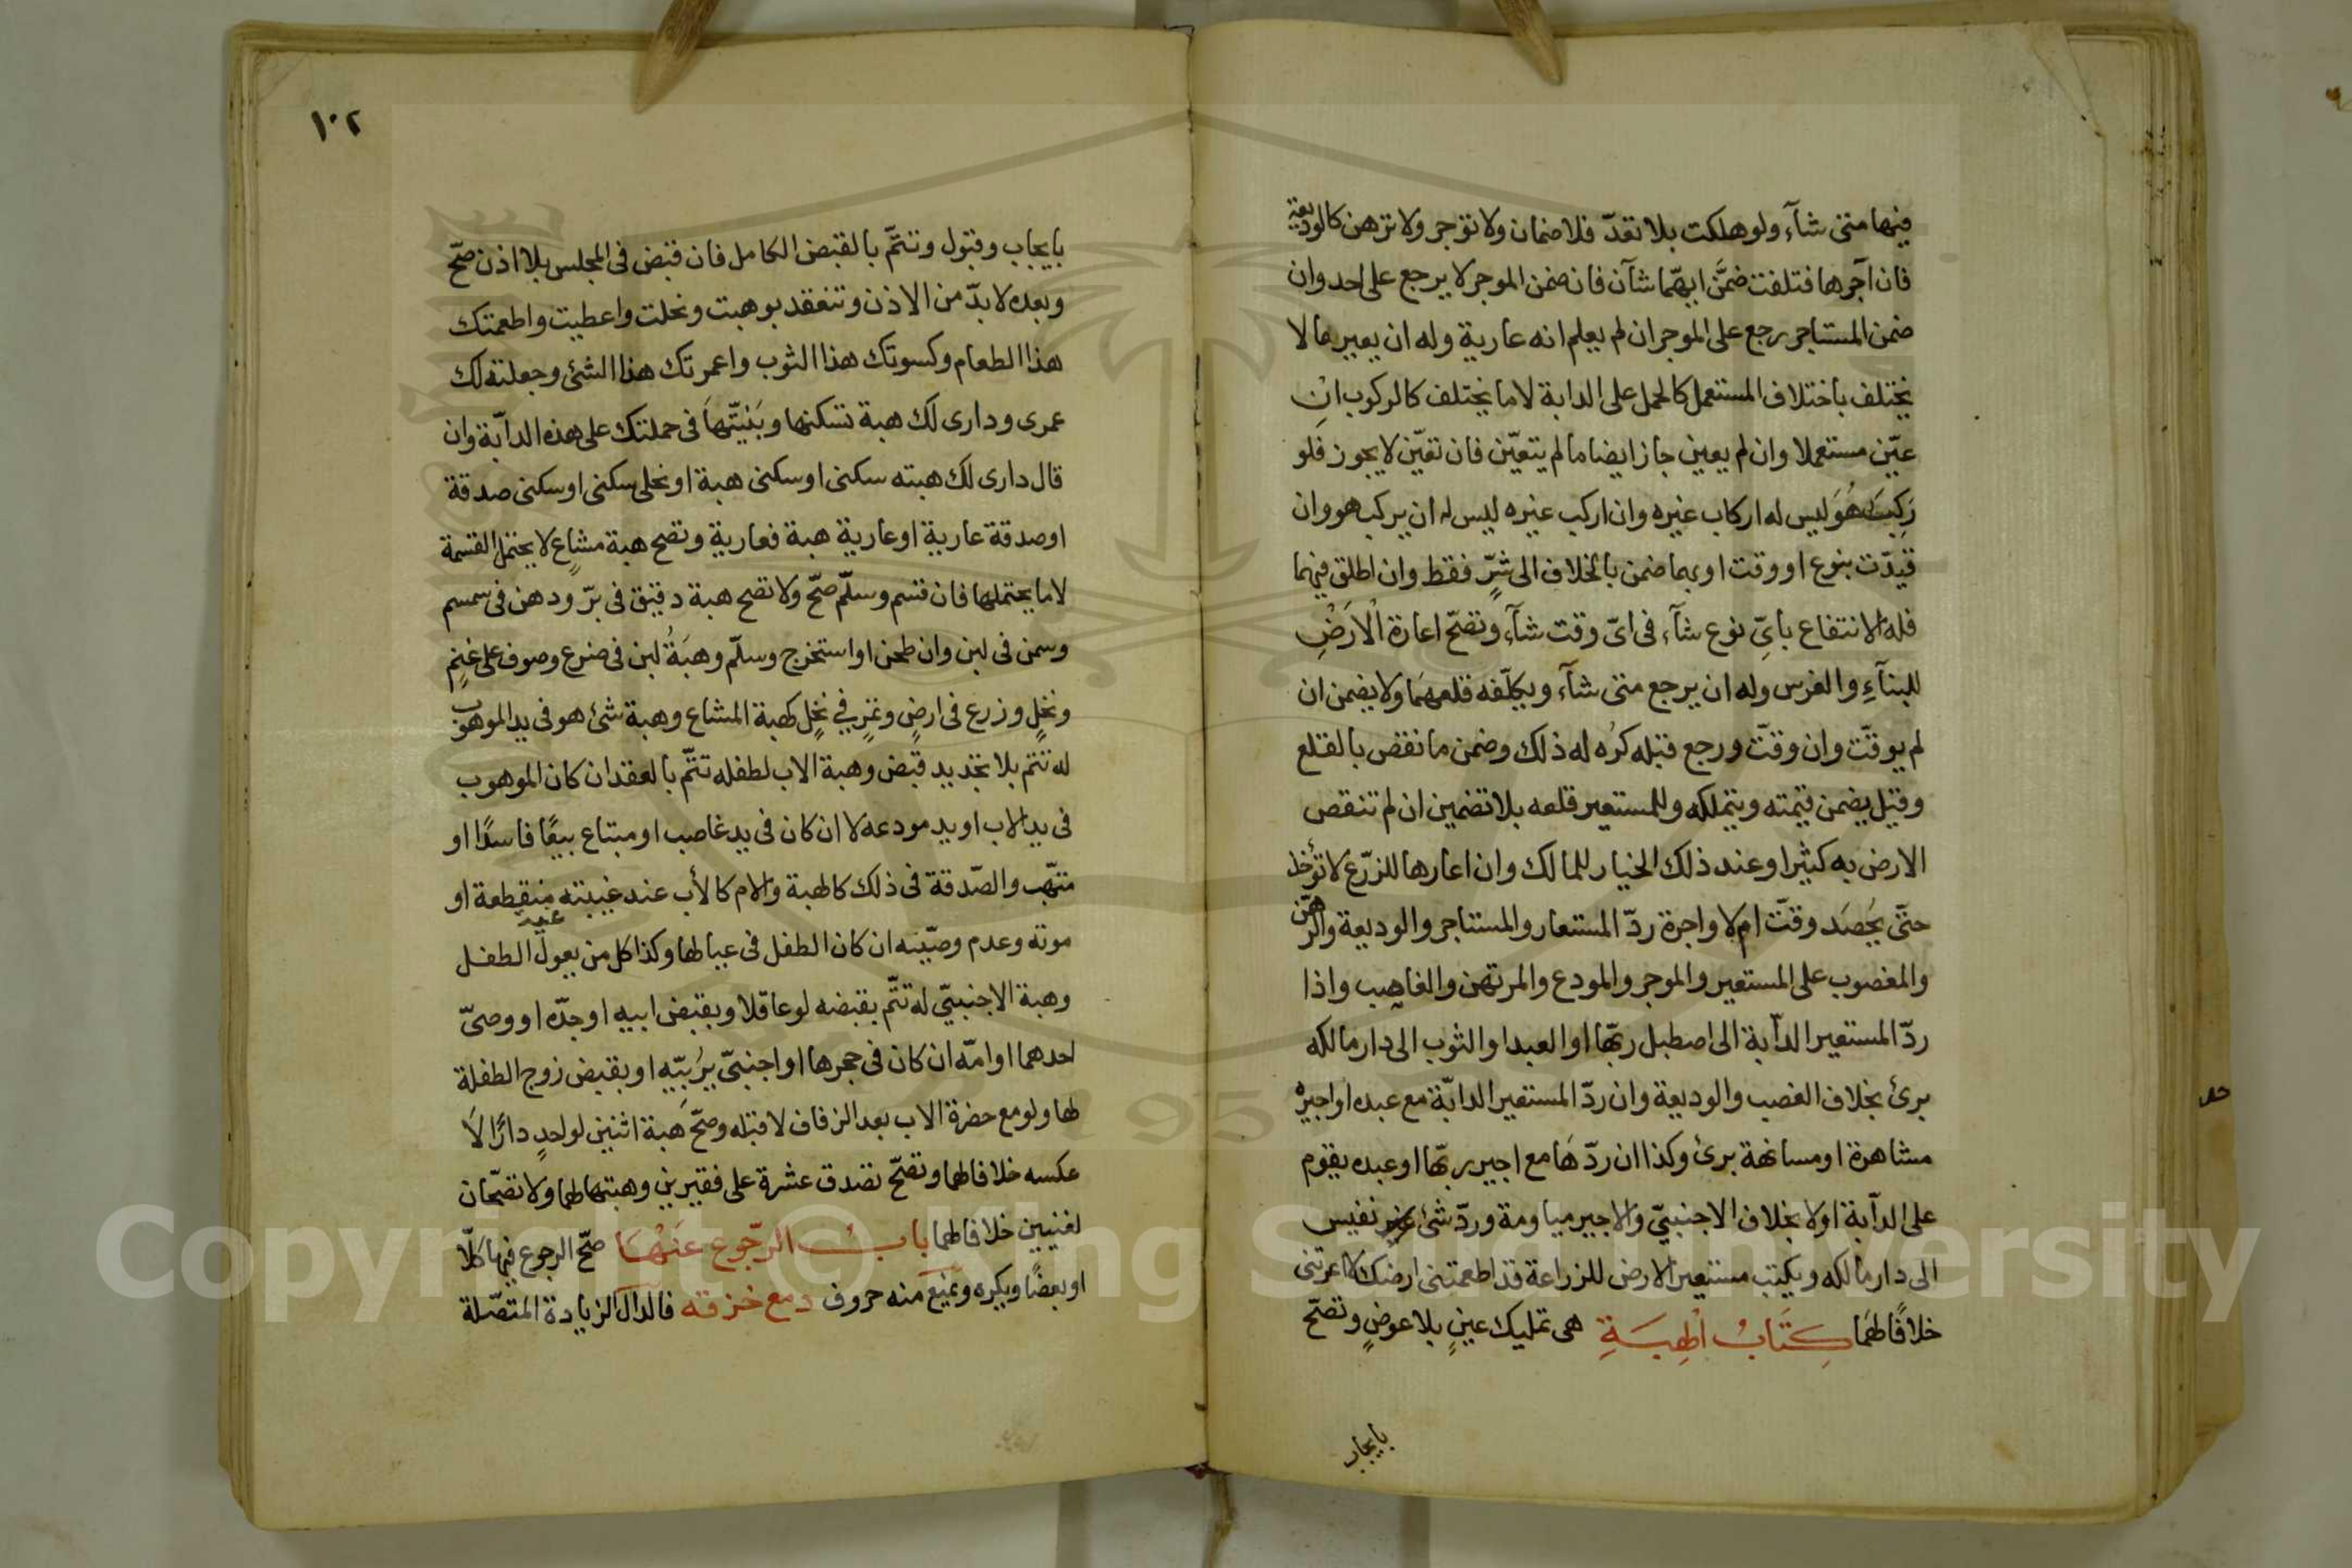 فيها متى شآء ولو هلكت بلا تعدّ فلا ضمان ولا تؤجر ولا ترهن كالوديعة
فان آجرها فتلفت ضمَّن ايهّما شآن فان ضمن الموجر لا يرجع على احد وان
ضمن المستاجر رجع على الموجر ان لم يعلم انه عارية وله ان يعير ما لا
يختلف باختلاف المستعمل كالحمل على الدابة لا ما يختلف كالركوب انِ
عيّن مستعملا وان لم يعين جاز ايضا ما لم يتعيّن فان تعيّن لا يجوز فلو
رَكِبَ هُوَ ليس له اركاب غيره وان اركب غيره ليس له ان يركب هو وان
قيدّت بنوع او وقت او بهما ضمن بالخلاف الى شرٍّ فقط وان اطلق فيهما
فله الانتفاع بايّ نوع شآء فى اىّ وقت شآء وتصحّ اعارة الْارَضْ
للبنآءِ والغرس وله ان يرجع متى شآء ويكلّفه قلعهمَا ولا يضمن ان
لم يوقتّ وان وقتّ ورجع قبله كرُه له ذلك وضمن ما نقص بالقلع
وقيل يضمن قيمته ويتملكه وللمستعير قلعه بلا تضمين ان لم تنقص
الارض به كثيرا وعند ذلك الخيار للمالك وان اعارها للزرّع لا تؤخذ
حتَّى يحُصَد وقتّ ام لا واجرة ردّ المستعار والمستاجر والوديعة والرّهن
والمغصوب على المستعير والموجر والمودع والمرتهن والغاصِب واذا
ردّ المستعير الدآبة الى اصطبل ربهّا او العبد او الثوب الى دار مالكه
برئ بخلاف الغصب والوديعة وان ردّ المستعير الدابّة مع عبده او اجيره
مشاهرة او مسانهة برئ وكذا ان ردّهَا مع اجير ربهّا او عبده يقوم
على الدآبة او لا بخلاف الاجنبىّ والاجير مياومة وردّ شئ غير نفيس
الى دار مالكه ويكتب مستعير الارض للزراعة قد اطعمتنى ارضك لا اعرتنى
خلافًا لهمَا كِتَابُ الْهِبَةِ هى تمليك عينٍ بلا عوضٍ وتصحّ
بايجاب
١٠٢
بايجاب وقبول وتتمّ بالقبض الكامل فان قبض فى المجلس بلا اذن صحّ
وبعده لا بدّ من الاذن وتنعقد بوهبت ونحلت واعطيت واطعمتك
هذا الطعام وكسوتك هذا الثوب واعمرتك هذا الشئ وجعلته لك
عمرى ودارى لك هبة تسكنها وبَنيّتهَا فى حملتك على هذه الدآبّة وان
قال دارى لك هبته سكنى او سكنى هبة او نحلى سكنى او سكنى صدقة
او صدقة عارية او عارية هبة فعارية وتصح هبة مشاعٍ لا يحتمل القسمة
لا ما يحتملها فان قسم وسلّم صحّ ولا تصح هبة دقيق فى برّ ودهن فى سمسم
وسمن فى لبن وان طحن او استخرج وسلّم وهبَةُ لبن فى ضرع وصوف على غنمٍ
ونخلٍ وزرع فى ارضٍ وتمرٍ في نخلٍ كهبة المشاع وهبة شئ هو فى يد الموهوب
له تتم بلا تجديد قبض وهبة الاب لطفله تتمّ بالعقد ان كان الموهوب
فى يد الاب او يد مودعه لا ان كان فى يد غاصب او مبتاع بيعًا فاسدًا او
متهّب والصّدقة فى ذلك كالهبة والام كالأب عند غيبته منقطعة او
موته وعدم وصّيه ان كان الطفل فى عيالها وكذا كل من يعول الطفل
وهبة الاجنبيّ له تتّم بقبضه لو عاقلا وبقبض ابيه او جدّه او وصىّ
احدهما او امّه ان كان فى حجرها او اجنبىّ يرُبيّه او بقبض زوج الطفلة
لها ولو مع حضرة الاب بعد الزفاف لا قبله وصحّ هبة اثنين لواحدٍ دارًا لَا
عكسه خلافا لهما وتصحّ تصدق عشرة على فقيرين وهبتها لهما ولا تصحّان
لغنيين خلافا لهما بابُ الرّجوع عَنْهَا صحّ الرجوع فيها كلّا
او بعضًا ويكره ويمنع منه حروف دمع خزقه فالدال الزيادة المتصّلة